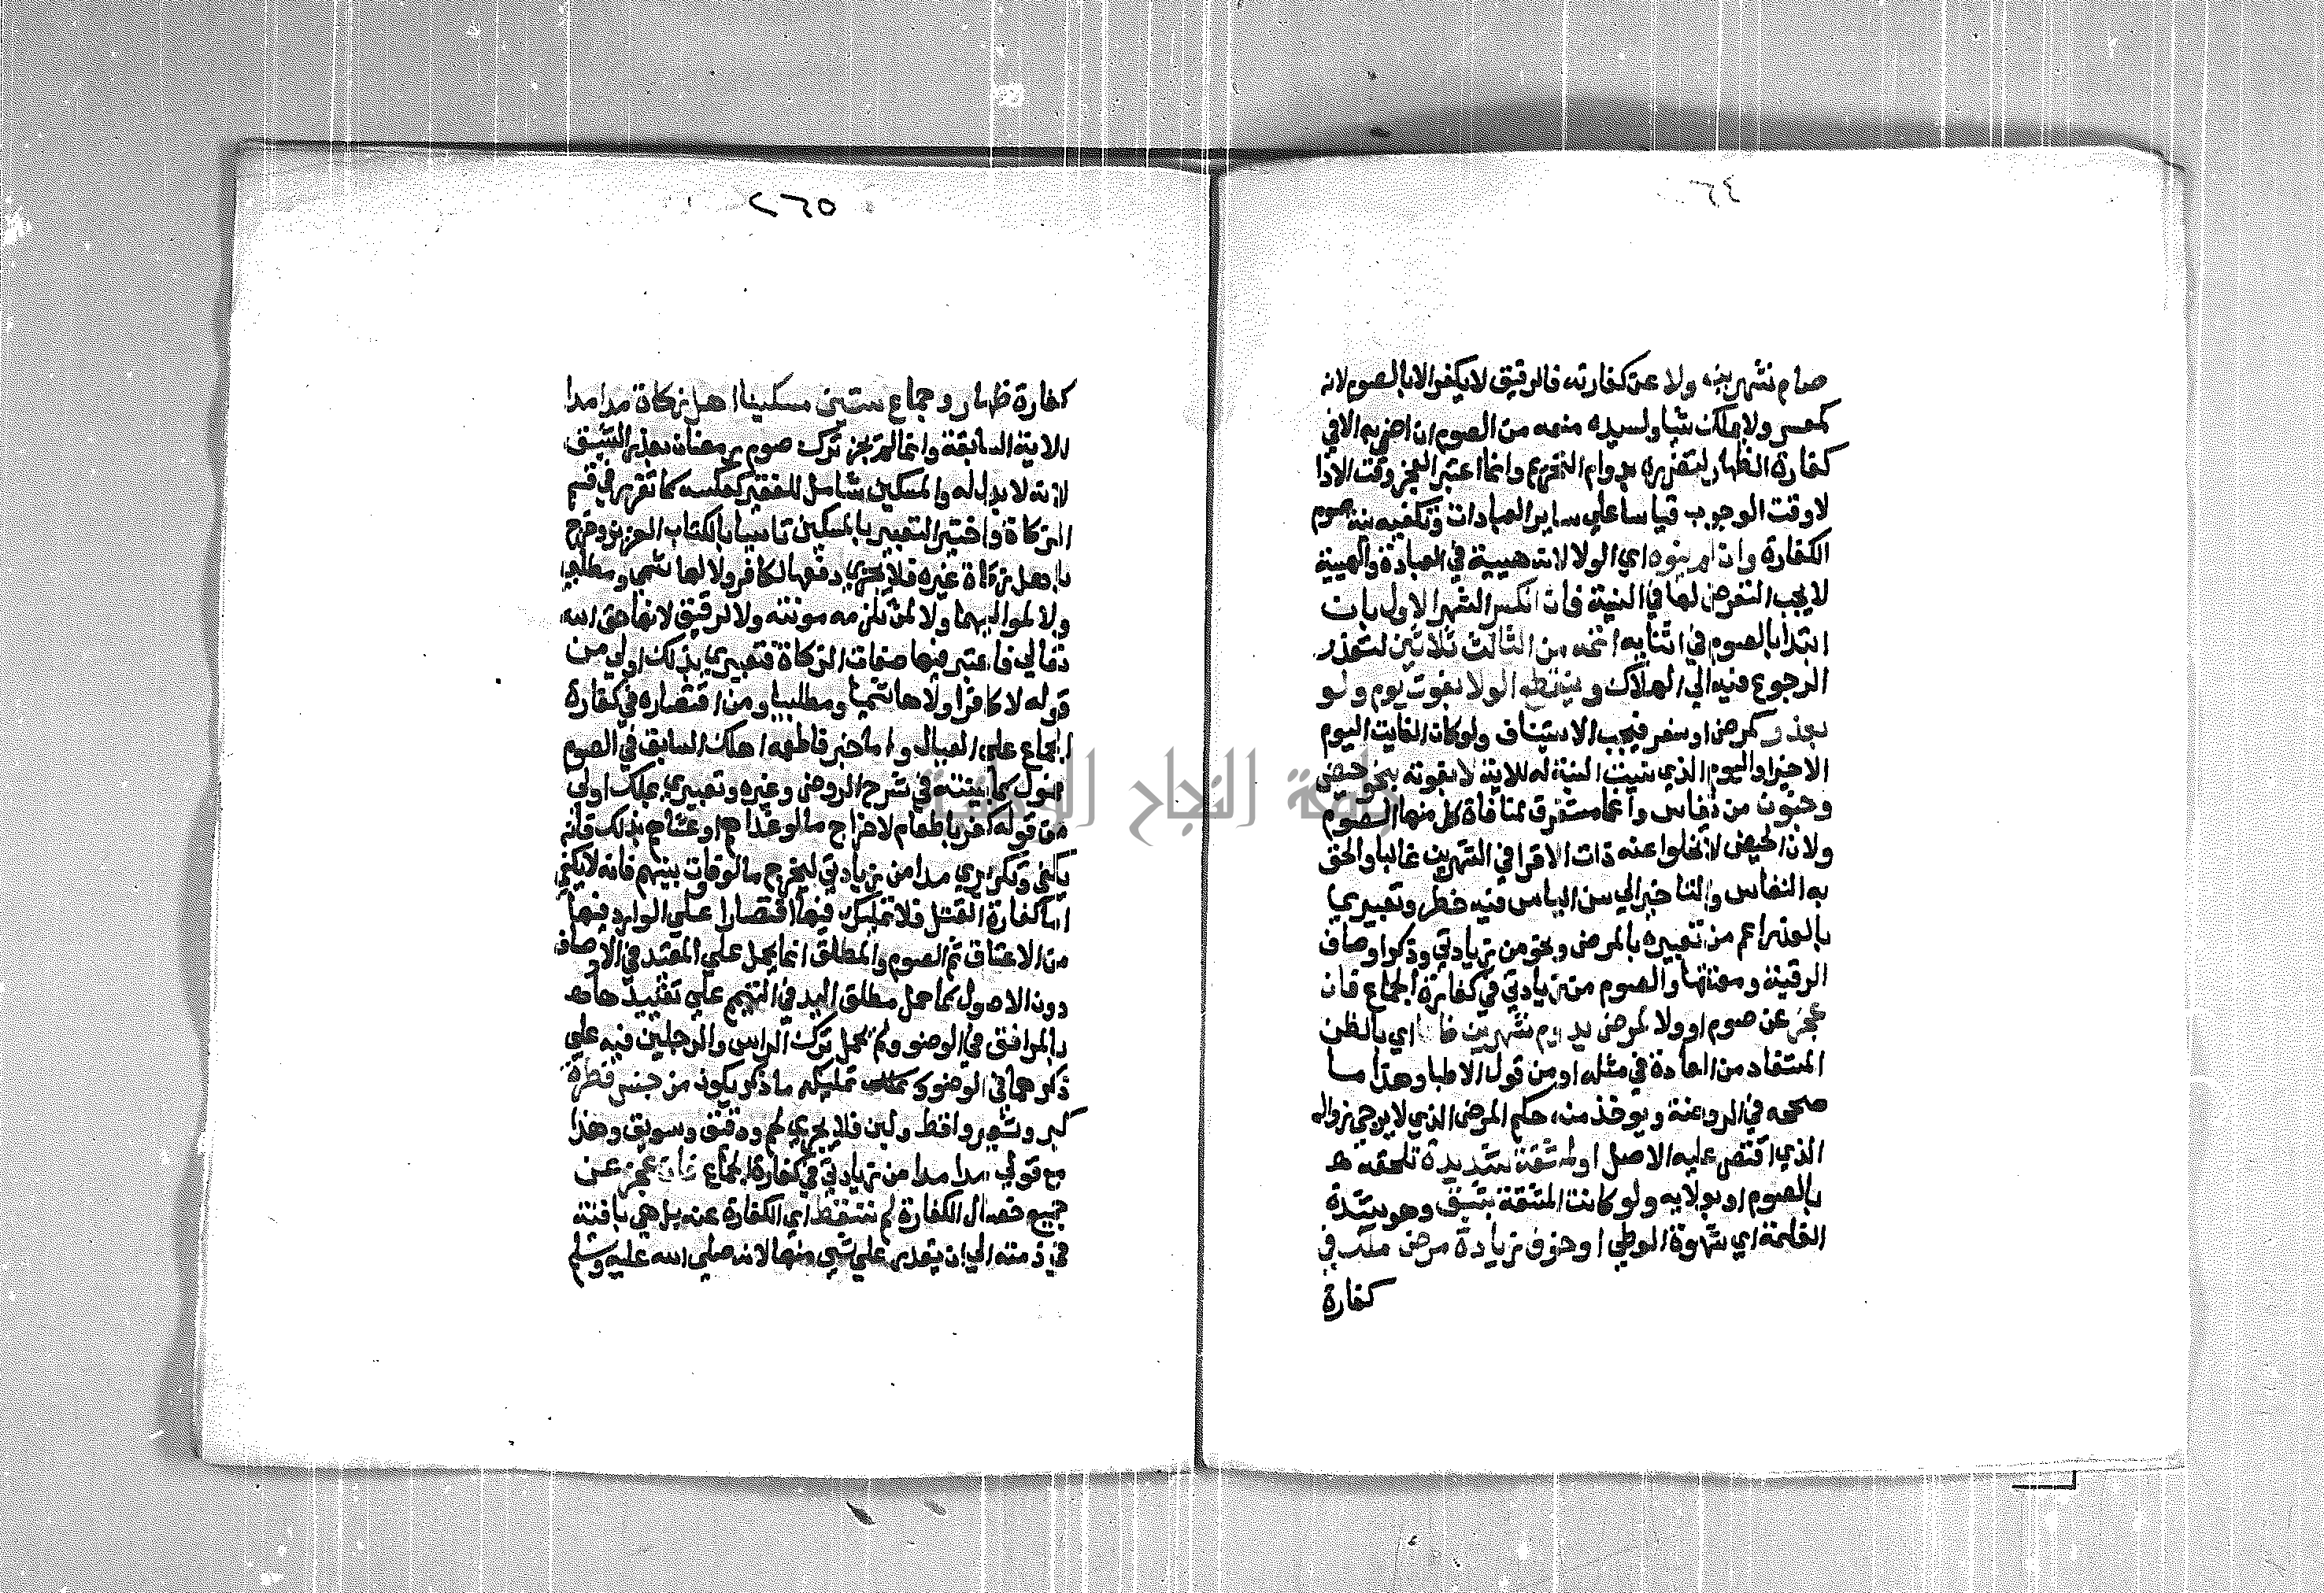 ٢٦٤
صام شهرين ولا عن كفارته فالرقيق لا يكفر الا بالصوم لانه
كمعسر ولا يملك شيا ولسيده منعه من الصوم ان اضر به الا في
كفارة الظهار لتضرره بدوام التحريم وانما اعتبر العجز وقت الادا
لا وقت الوجوب قياسا علي ساير العبادات وتكفيه نية صوم
الكفارة وان لم ينوه اي الولا لانه هيية في العبادة والهيية
لا يجب التعرض لها في النية فان انكسر الشهر الاول بان
ابتدا بالصوم في اثنايه اتمه من الثالث ثلاثين لتعذر
الرجوع فيه الي الهلال وينقطع الولا بفوت يوم ولو
بعذر كمرض او سفر فيجب الاستيناف ولو كان الفايت اليوم
الاخير او اليوم الذي نسيت النية له للاية لا بفوته بنحو حيض
وجنون من نفاس واغما مستغرق لمنافاة كل منها الصوم
ولان الحيض لا تخلوا عنه ذات الاقرا في الشهرين غالبا والحق
به النفاس والتاخير الي سن الياس فيه خطر وتعبيري
بالعذر اعم من تعبيره بالمرض ونحو من زيادتي وذكر اوصاف
الرقبة ومعتقها والصوم من زيادتي في كفارة الجماع فان
عجز عن صوم او ولا لمرض يدوم شهرين ظنا اي بالظن
المستفاد من العادة في مثله او من قول الاطبا وهذا ما
صححه في الروضة ويوخذ منه حكم المرض الذي لا يرجي زواله
الذي اقتصر عليه الاصل او لمشقة شديدة تلحقه
بالصوم او بولايه ولو كانت المشقة بشبق وهو شدة
الغلمة اي شهوة الوطي او خوف زيادة مرض ملك في
كفارة
٢٦٥
كفارة ظهار وجماع ستين مسكينا اهل زكاة مدا مدا
للاية السابقة وانما لم يجز ترك صوم رمضان بعذر الشبق
لانه لا بدل له والمسكين شامل للفقير كعكسه كما تقرر في قسم
الزكاة واختير التعبير بالمسكين تاسيا بالكتاب العزيز وخرج
باهل زكاة غيره فلا يجزي دفعها لكافر ولا لهاشمي ومطلبي
ولا لمواليهما ولا لمن تلزمه مونته ولا لرقيق لانها حق الله
تعالي فاعتبر فيها صفات الزكاة فتعبيري بذلك اولي من
قوله لا كافرا ولا هاشميا ومطلبيا ومن اقتصاره في كفارة
الجماع علي العيال واما خبر فاطعمه اهلك السابق في الصوم
فمؤول كما بينته في شرح الروض وغيره وتعبيري بملك اولي
من قوله كفر باطعام لاخراج ما لو غداهم او عشاهم بذلك فانه
يكفي وتكريري مدا من زيادتي ليخرج ما لو فاوت بينهم فانه لا يكفي
اما كفارة القتل فلا تمليك فيها اقتصارا علي الوارد فيها
من الاعتاق ثم الصوم والمطلق انما يحمل علي المقيد في الاوصاف
دون الاصول كما حمل مطلق اليد في التيمم علي تقييدها
بالمرافق في الوضو ولم يحمل ترك الراس والرجلين فيه علي
ذكرهما في الوضو تمليكهم ما ذكر يكون من جنس فطرة
كبر وشعير واقط ولبن فلا يجزي لحم ودقيق وسويق وهذا
مع قولي مدا مدا من زيادتي في كفارة الجماع فان عجز عن
جميع خصال الكفارة لم تسقط اي الكفارة عنه بل هي باقية
في ذمته الي ان يقدر علي شي منها لانه صلي الله عليه وسلم
جامعة النجاح الوطنية